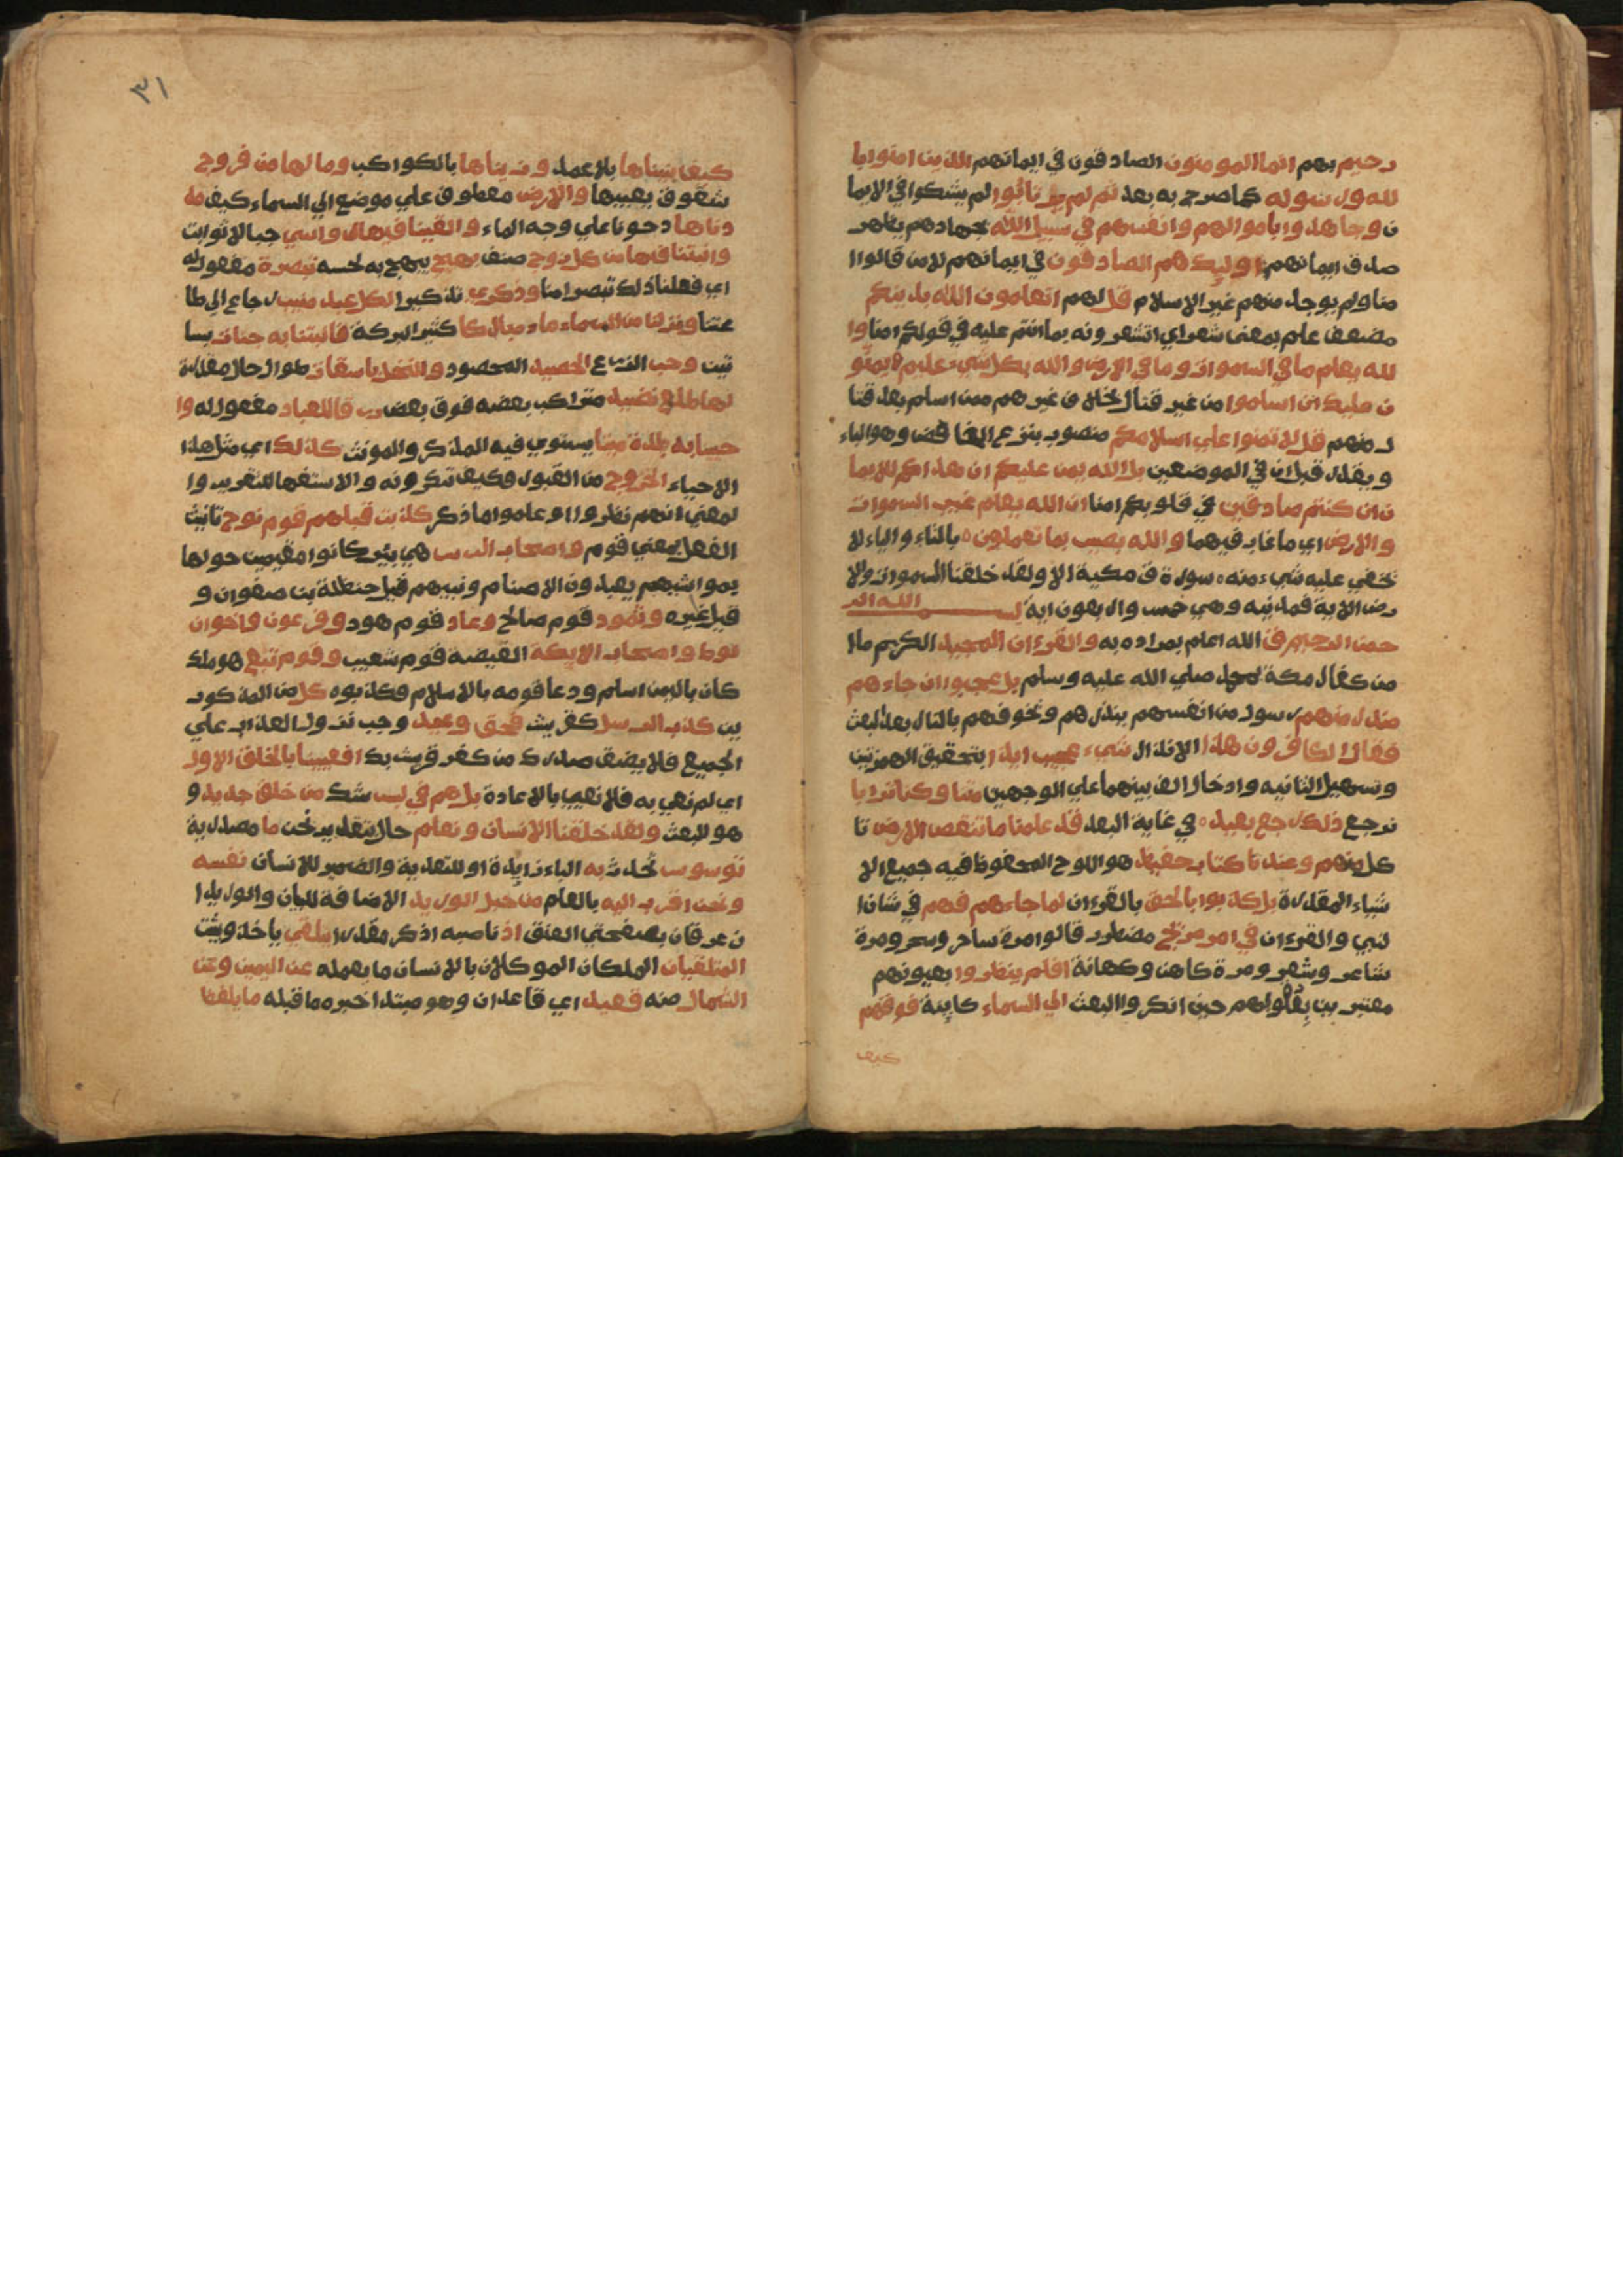 رحيم بهم انما المومنون الصادقون في ايمانهم الذين امنوا با
لله ورسوله كما صرح به بعد ثم لم يرتابوا لم يشكوا في الايما
ن وجاهدوا باموالهم وانفسهم في سبيل الله بجهادهم يظهر
صدق ايمانهم اوليك هم الصادقون في ايمانهم لا من قالوا ا
منا ولم يوجد منهم غير الاسلام قل لهم اتعلمون الله بدينكم
مضعف علم بمعنى شعر اي اتشعرونه بما انتم عليه في قولكم امنا وا
لله يعلم ما في السموات وما في الارض والله بكل شيء عليم يمنو
ن عليك ان اسلموا من غير قتال بخلاف غيرهم ممن اسلم بعد قتا
ل منهم قل لا تمنوا علي اسلامكم منصوب بنزع الخافض وهو الباء
ويقدر قبل ان في الموضعين بل الله يمن عليكم ان هداكم للايما
ن ان كنتم صادقين في قلوبكم امنا ان الله يعلم غيب السموات
والارض اي ما غاب فيهما والله بصير بما تعملون بالتاء والياء لا
يخفي عليه شيء منه سورة ق مكية الا ولقد خلقنا السموات والا
رض الاية فمدنيه وهي خمس واربعون اية بسم الله الر
حمن الرحيم ق الله اعلم بمراده به والقرءان المجيد الكريم ما ا
من كفار مكة بمحمد صلي الله عليه وسلم بل عجبوا ان جاءهم
منذر منهم رسول من انفسهم ينذرهم ويخوفهم بالنار بعد البعث
فقال الكافرون هذا الانذار شيء عجيب ايذا بتحقيق الهمزتين
وتسهيل الثانيه وادخال الف بينهما علي الوجهين متنا وكنا ترابا
نرجع ذلك رجع بعيد في غاية البعد قد علمنا ما تنقص الارض تا
كل منهم وعندنا كتاب حفيظ هو اللوح المحفوظ فيه جميع الا
شياء المقدرة بل كذبوا بالحق بالقرءان لما جاءهم فهم في شان ا
لنبي والقرءان في امر مريج مضطرب قالوا مرة ساحر وسحر ومرة
شاعر وشعر ومرة كاهن وكهانة افلم ينظروا بعيونهم
معتبرين بعقولهم حين انكروا البعث الي السماء كاينة فوقهم
كيف
٣١
كيف بنيناها بلا عمد وزيناها بالكواكب وما لها من فروج
شقوق يعيبها والارض معطوف علي موضع الي السماء كيف مد
دناها دحوناها علي وجه الماء والقينا فيها رواسي جبالا ثوابت
وانبتنا فيها من كل زوج صنف بهيج يبهج به لحسنه تبصرة مفعول له
اي فعلنا ذلك تبصيرا منا وذكري تذكيرا لكل عبد منيب رجاع الي طا
عتنا ونزلنا من السماء ماء مباركا كثير البركة فانبتنا به جنات بسا
تين وحب الزرع الحصيد المحصود والنخل باسقات طوالا حال مقدرة
لها طلع نضيد متراكب بعضه فوق بعض رزقا للعباد مفعول له وا
حيينا به بلدة ميتا يستوي فيه المذكر والمونث كذلك اي مثل هذا
الاحياء الخروج من القبور فكيف تنكرونه والاستفهام للتقرير وا
لمعني انهم نظروا وعلموا ما ذكر كذبت قبلهم قوم نوح تانيث
الفعل بمعني قوم واصحاب الرس هي بير كانوا مقيمين حولها
بمواشيهم يعبدون الاصنام ونبيهم قيل حنظلة بن صفوان و
قيل غيره وثمود قوم صالح وعاد قوم هود وفرعون واخوان
لوط واصحاب الايكة الغيضة قوم شعيب وقوم تبع هو ملك
كان باليمن اسلم ودعا قومه بالاسلام فكذبوه كل من المذكور
ين كذب الرسل كقريش فحق وعيد وجب نزول العذاب علي
الجميع فلا يضق صدرك من كفر قريش بك افعيينا بالخلق الاول
اي لم نعي به فلا نعيي بالاعادة بل هم في لبس شك من خلق جديد و
هو البعث ولقد خلقنا الانسان ونعلم حال بتقدير نحن ما مصدرية
توسوس تحدث به الباء زايدة او للتعدية والضمير للانسان نفسه
ونحن اقرب اليه بالعلم من حبل الوريد الاضافة للبيان والوريدا
ن عرقان بصفحتي العنق اذ ناصبه اذكر مقدرا يتلقي ياخذ ويثبت
المتلقيان الملكان الموكلان بالانسان ما يعمله عن اليمين وعن
الشمال منه قعيد اي قاعدان وهو مبتدا خبره ما قبله ما يلفظ